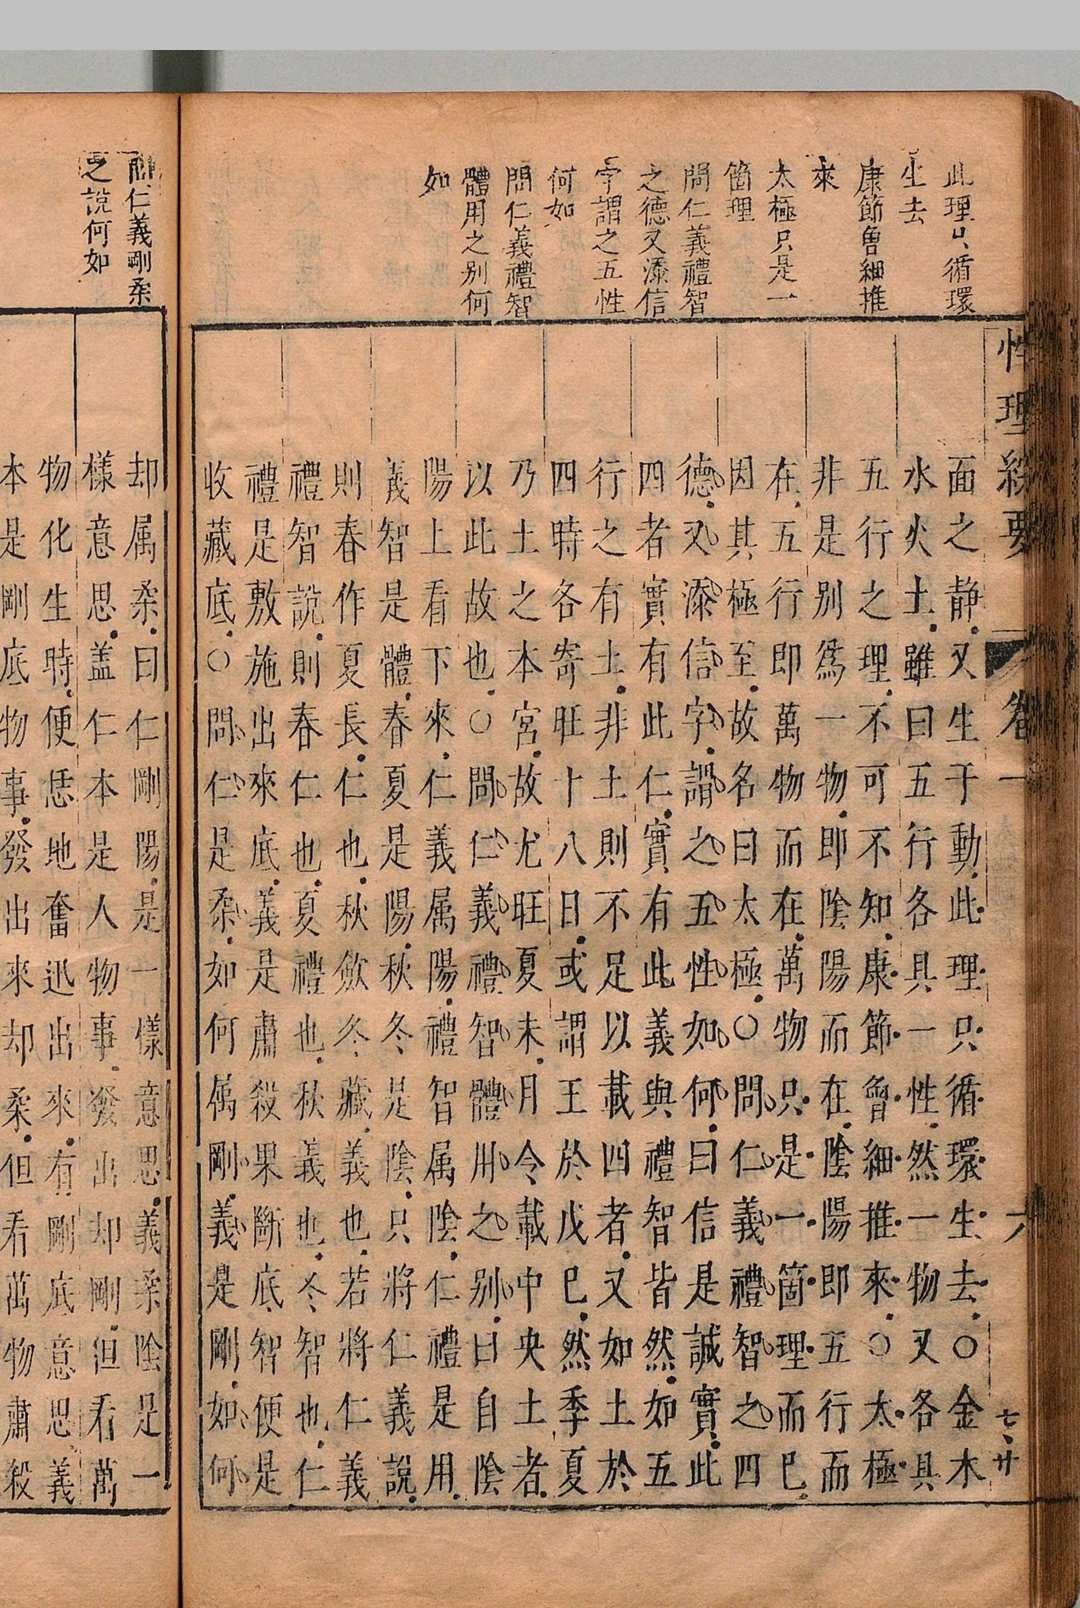 此理只循環
生去
康節曾細推
來
太極只是一
箇理
問仁義禮智
之德又添信
字謂之五性
何如
問仁義禮智
體用之別何
如
性理綜要
卷一
面之静又生于動此理只循環生去○金木
水火土雖曰五行各具一性然一物又各具
五行之理不可不知康節曾細推來○太極
非是别爲一物即陰陽而在陰陽即五行而
在五行即萬物而在萬物只是一箇理而巳
因其極至故名曰太極○問仁義禮智之四
德又添信字謂之五性如何曰信是誠實此
四者實有此仁實有此義與禮智皆然如五
行之有土非土則不足以載四者又如土於
四時各寄旺十八日或謂王於戊巳然季夏
乃土之本宮故尤旺夏未月令載中央土者
以此故也○問仁義禮智體用之别曰自陰
陽上看下來仁義属陽禮智属陰仁禮是用
義智是體春夏是陽秋冬是陰只將仁義說
則春作夏長仁也秋斂冬藏義也若將仁義
禮智說則春仁也夏禮也秋義也冬智也仁
禮是敷施出來底義是肅殺果斷底智便是
收藏底○問仁是柔如何属剛義是剛如何
問仁義剛柔
之說何如
却属柔曰仁剛陽是一樣意思義柔陰是一
樣意思盖仁本是人物事發出却剛但看萬
物化生時便恁地奮迅出來有剛底意思義
本是剛底物事發出來却柔但看萬物肅殺